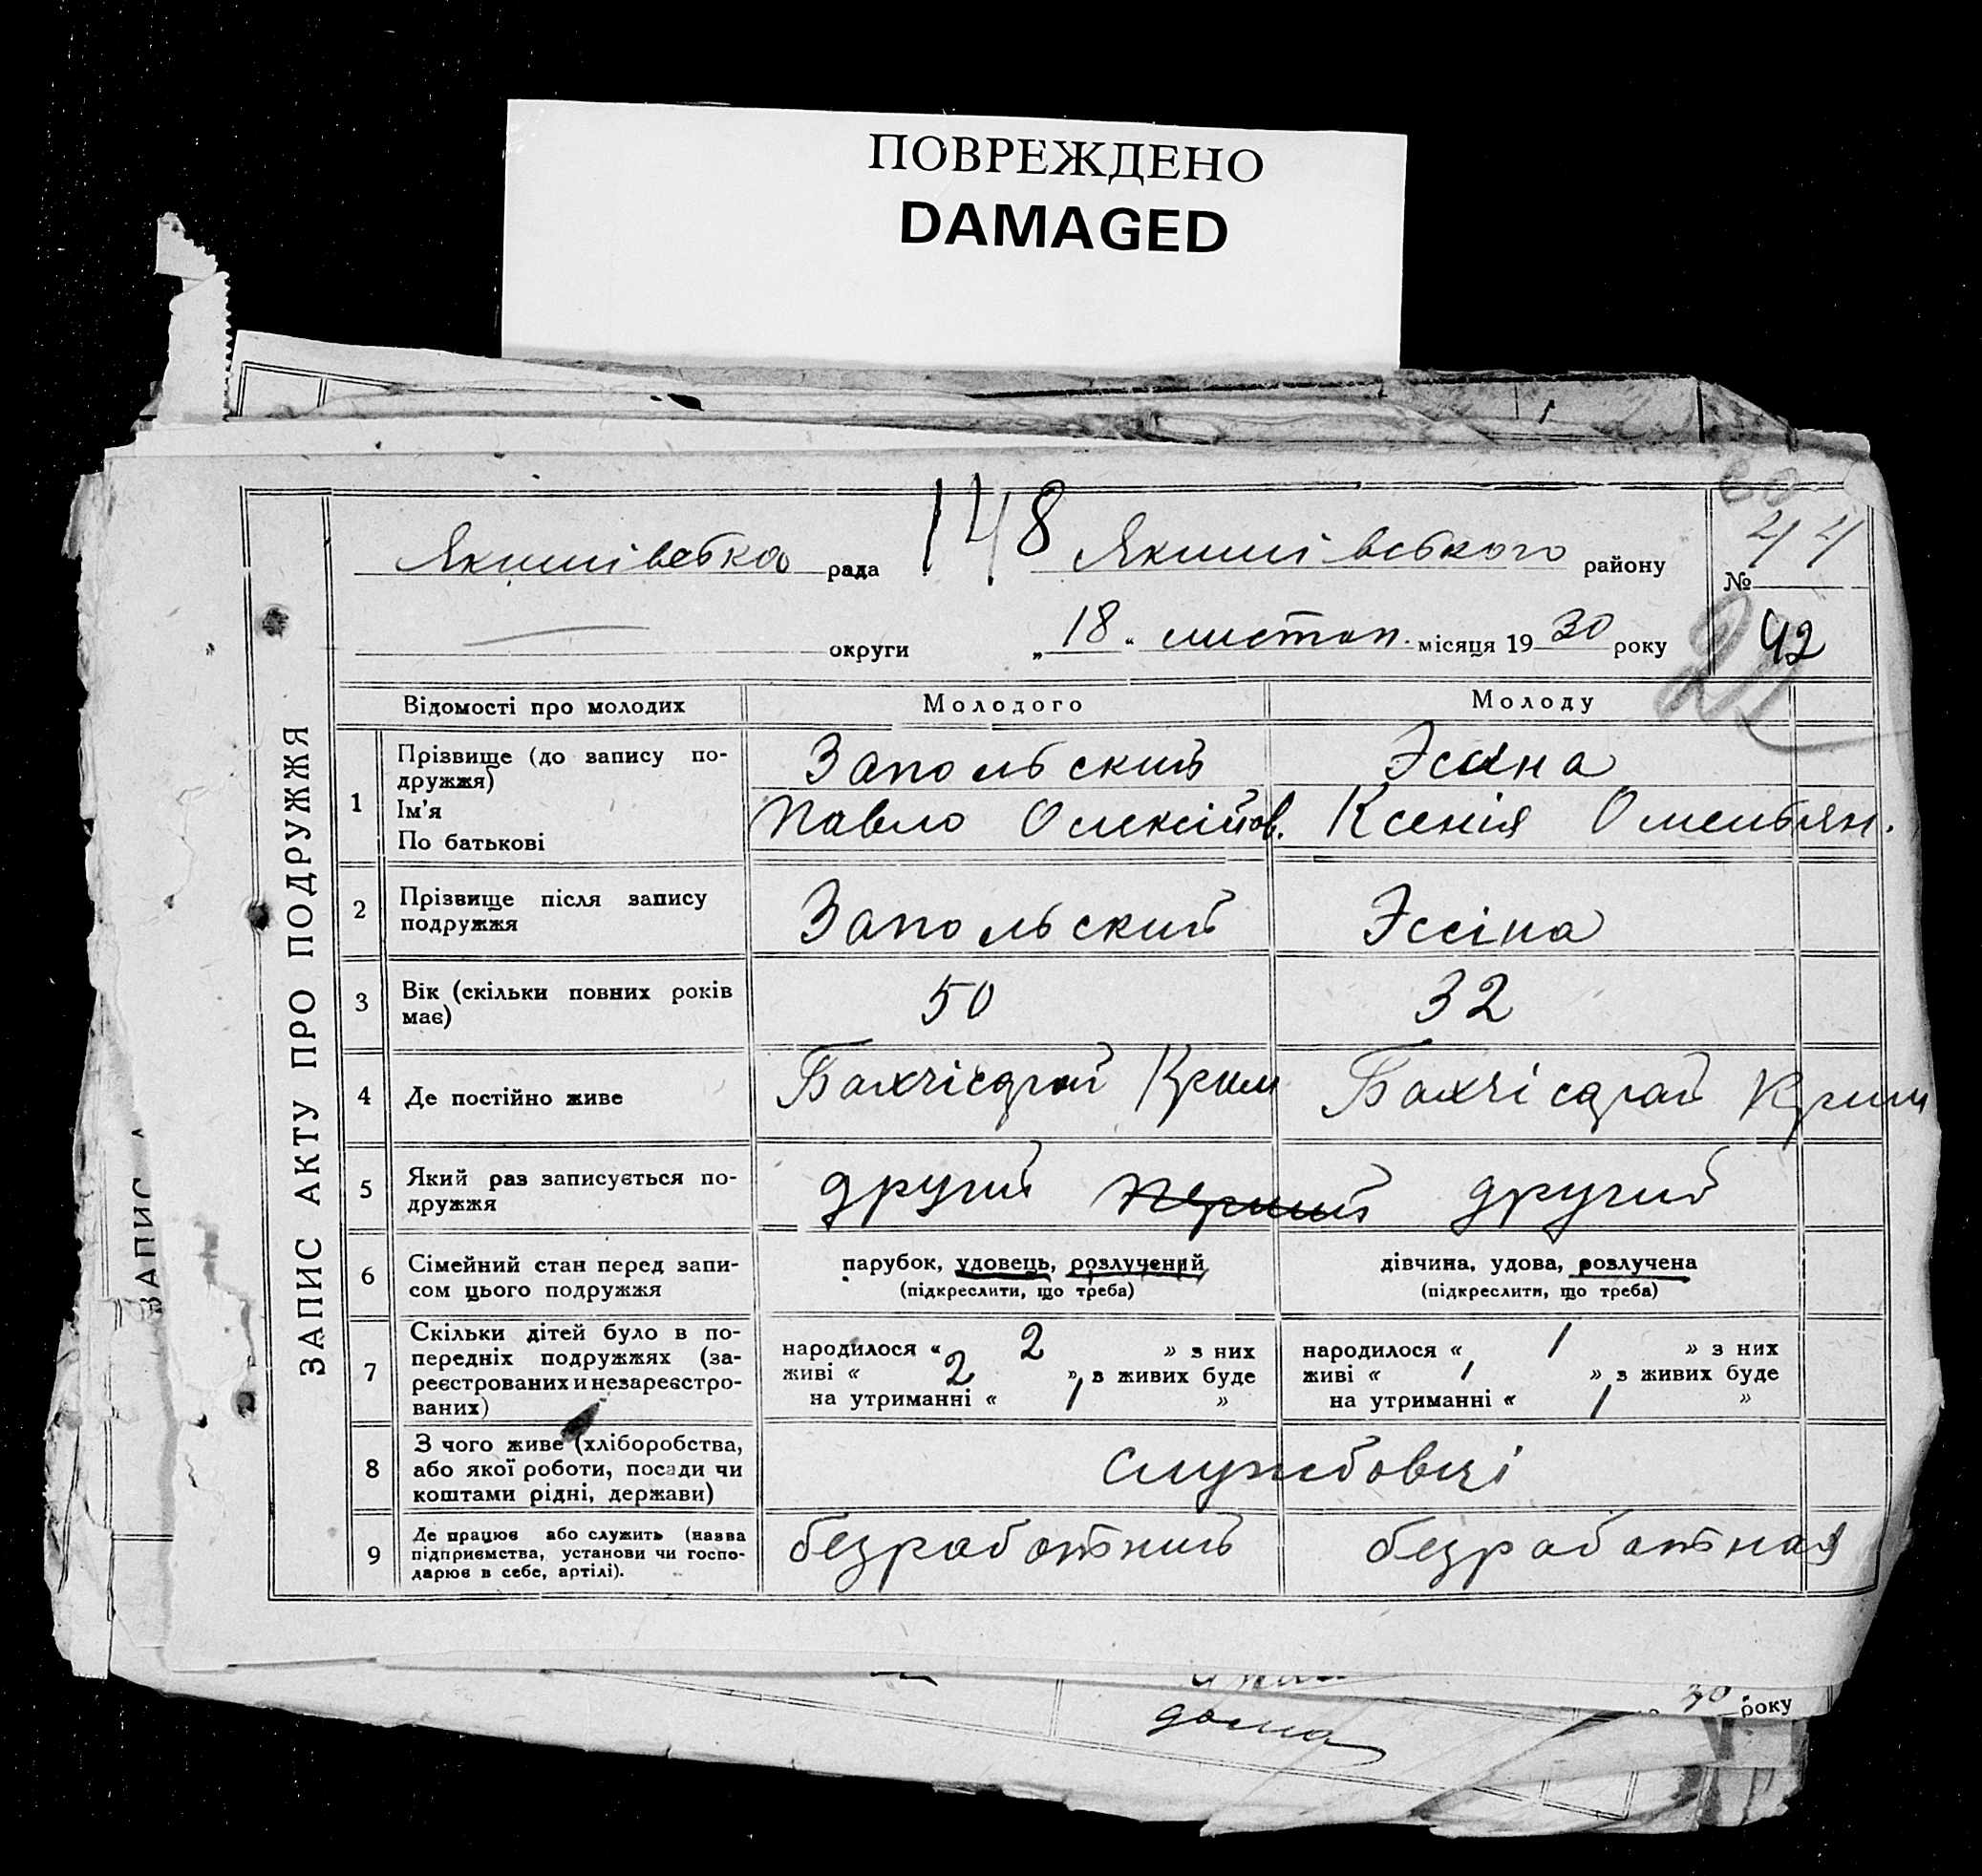 ПОВРЕЖДЕНО
DAMAGED
148
Якимівська рада Якимівського району № 44
округи „ 18 “ листоп. місяця 19 30 року 42
ЗАПИС АКТУ ПРО ПОДРУЖЖЯ
Відомості про молодих Молодого Молоду
1 Прізвище (до запису по-
дружжя)
Ім'я
По батькові
Запольский Эсина
Павло Олексійов. Ксенія Омельян.
2 Прізвище після запису
подружжя
Запольский Эссіна
3 Вік (скільки повних років
має)
50 32
4 Де постійно живе
Бахчісарай Крим Бахчісарай Крим
5 Який раз записується по-
дружжя
другий перший другий
6 Сімейний стан перед запи-
сом цього подружжя
парубок, удовець, розлучений
(підкреслити, що треба)
дівчина, удова, розлучена
(підкреслити, що треба)
7 Скільки дітей було в по-
передніх подружжях (за-
реєстрованих и незареєстро-
ваних)
народилося „ 2 » з них
живі „ 2 », з живих буде
на утриманні „ 1 »
народилося „ 1 » з них
живі „ 1 » з живих буде
на утриманні „ 1 »
8 З чого живе (хліборобства,
або якої роботи, посади чи
коштами рідні, держави)
службовці
9 Де працює або служить (назва
підприємства, установи чи госпо-
дарює в себе, артілі).
безработний безработная
ЗАПИС
30 року
дома